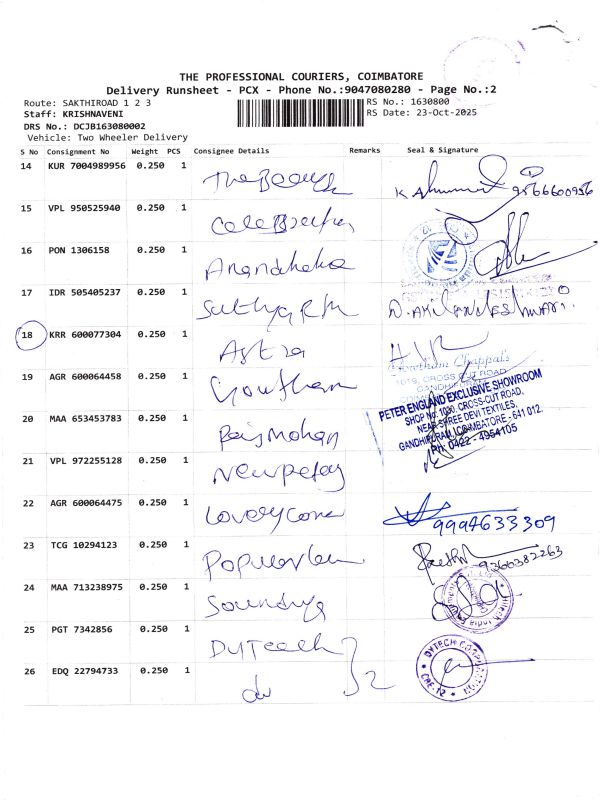 THE PROFESSIONAL COURIERS, COIMBATORE
Delivery Runsheet - PCX - Phone No.:9047080280 - Page No.:2
Route: SAKTHIROAD 1 2 3
RS No.: 1630800
Staff: KRISHNAVENI
RS Date: 23-Oct-2025
DRS No.: DCJB163080002
Vehicle: Two Wheeler Delivery
S No Consignment No Weight PCS Consignee Details Remarks Seal & Signature
14 KUR 7004989956 0.250 1 The 9566600956
15 VPL 950525940 0.250 1
16 PON 1306158 0.250 1
17 IDR 505405237 0.250 1 Sathya
18 KRR 600077304 0.250 1 Astra
19 AGR 600064458 0.250 1 Goutham
Goutham Chappals
1019, CROSS CUT ROAD
20 MAA 653453783 0.250 1 Rajmohan
PETER ENGLAND EXCLUSIVE SHOWROOM
SHOP No. 1030, CROSS-CUT ROAD,
NEAR SHREE DEVI TEXTILES,
GANDHIPURAM, COIMBATORE - 641 012.
Ph: 0422 - 4954105
21 VPL 972255128 0.250 1
22 AGR 600064475 0.250 1 9994633309
23 TCG 10294123 0.250 1 Popular 9360382263
24 MAA 713238975 0.250 1 Soundrya
25 PGT 7342856 0.250 1 Dytech
DYTECH
CBE-12
26 EDQ 22794733 0.250 1 do 2